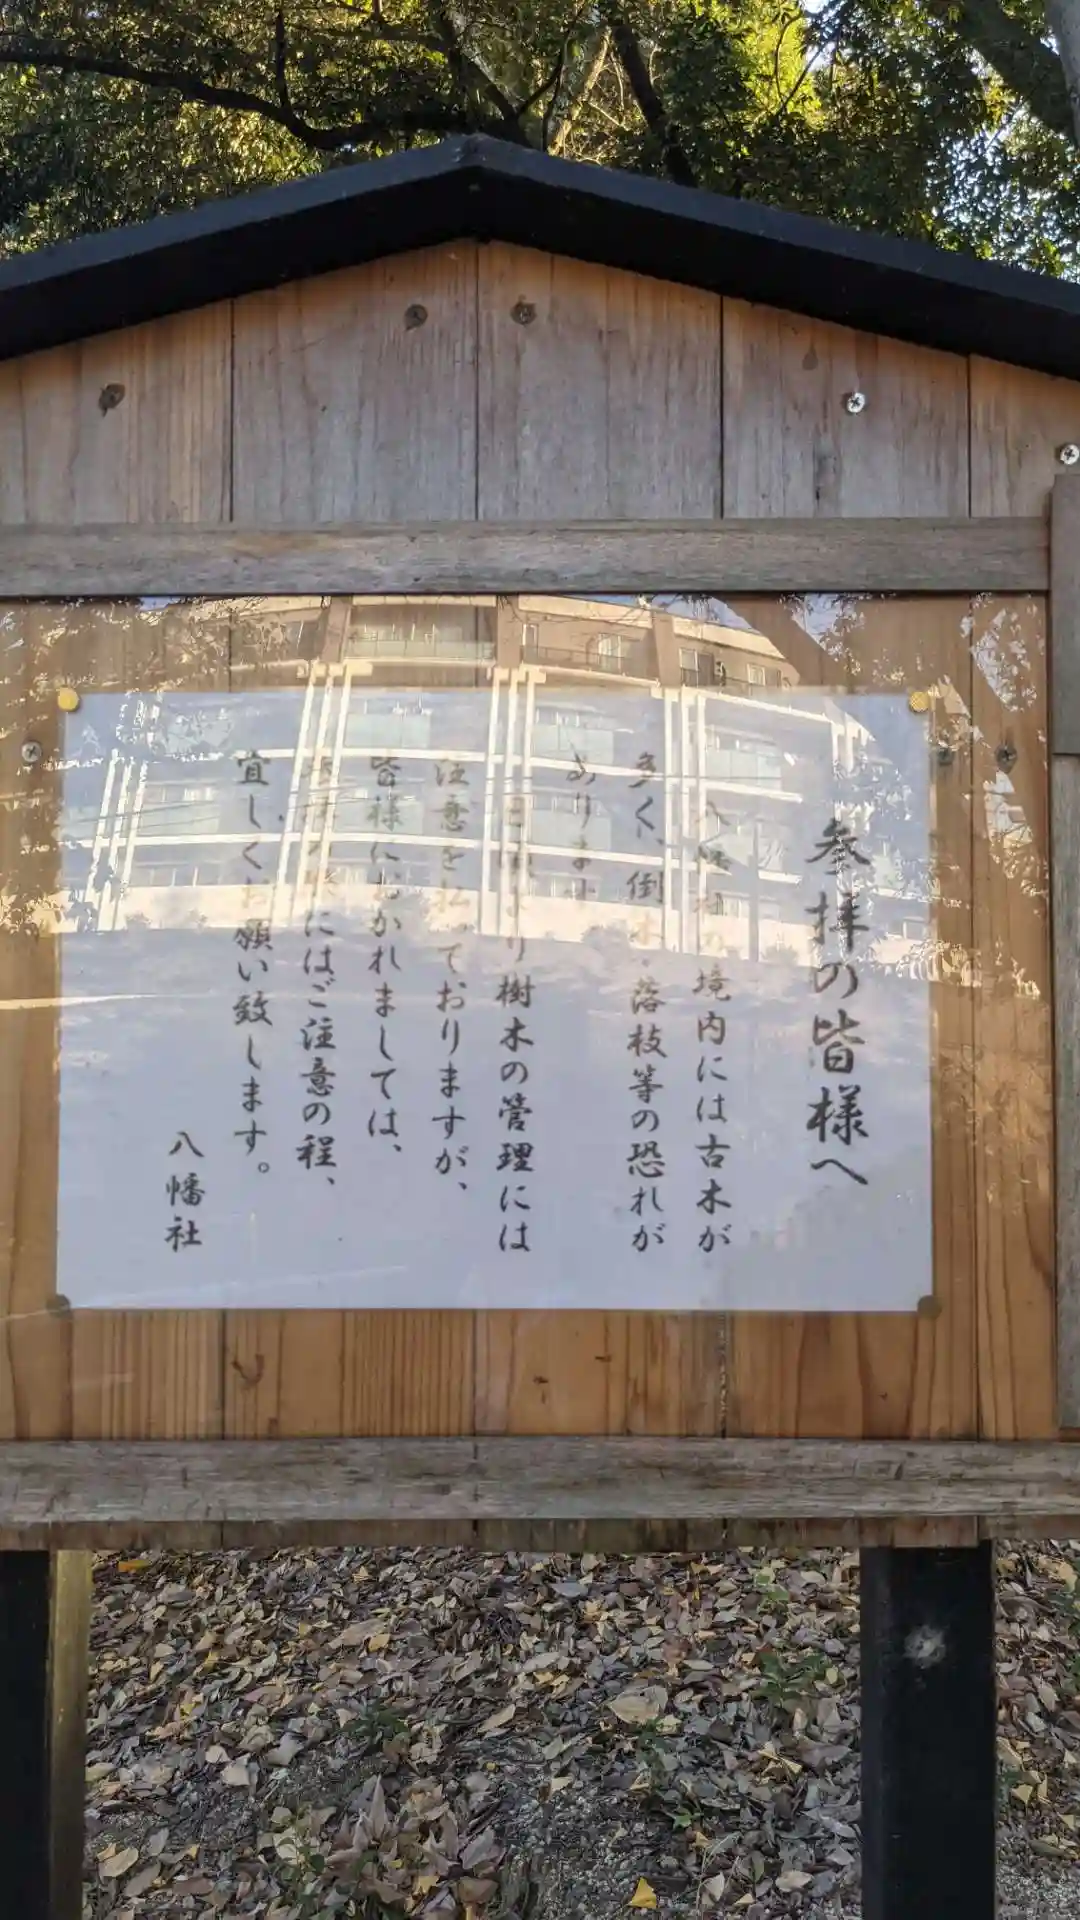 参拝の皆様へ
八幡社の境内には古木が
多く、倒木・落枝等の恐れが
あります
日頃より樹木の管理には
注意を払っておりますが、
皆様におかれましては、
にはご注意の程、
宜しくお願い致します。
八幡社